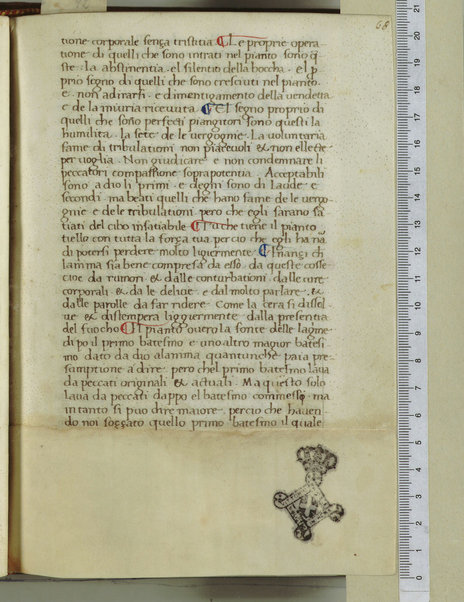 68
tione corporale senza tristitia ¶ Le proprie opera
tione di quelli che sono intrati nel pianto sono q̃
ste · la abstinentia · el silentio della boccha · el p̃
prio segno di quelli che sono cresciuti nel pianto
e · non adirarsi · e dimentigamento della vendetta
e de la iniuria riceuuta · ¶ El segno proprio di
quelli che sono perfecti piangitori sono questi la
humilita · la sete de le vergogne · La voluntaria
fame di tribulationi non piaceuoli & non ellecte
per voglia · Non giudicare e non condennare li
peccatori compassione sopra potentia · Acceptabili
sono a dio li primi · e degni sono di Laude · e
secondi · ma beati quelli che hano fame de le vergo
gnie e de le tribulationi · pero che egli sarano sa
tiati del cibo insatiabile ¶ Tu che tiene il pianto
tiello con tutta la forza tua percio che egli ha nã
di potersi perdere molto ligiermente ¶ Inanzi ch
lamma sia bene compresa da esso · da queste cose
cioe da rumori & dalle conturbationi · dalle cure
corporali & da le delitie · e dal molto parlare · &
dalle parolle da far ridere · Come la cera si dissol
ue & distempera liggiermente dalla presentia
del fuocho ¶ El pianto ouero la fonte delle lagrime
di po il primo batesmo e uno altro magior batesi
mo dato da dio alamma quantunche paia pre
sumptione a dire · pero chel primo batesmo laua
da peccati originali & actuali · Ma questo solo
laua da peccati da ppo el batesmo commesso · ma
in tanto si puo dire maiore · percio che hauen
do noi sozzato quello primo batesmo il quale
0 1 2 3 4 5 6 7 8 9 10 11 12 13 14 15 16 17 18 19 20 21